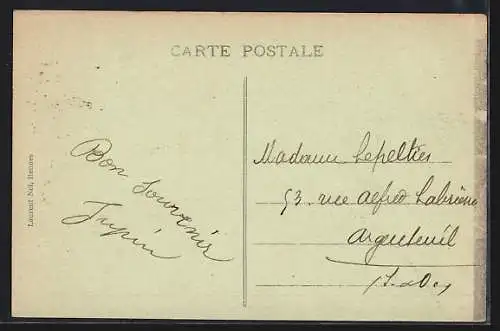 CARTE POSTALE
Laurent Nel, Rennes
Bon Souvenir
Madame Lepeltier
53. rue Alfred Labrière
Argenteuil
S. & Oe